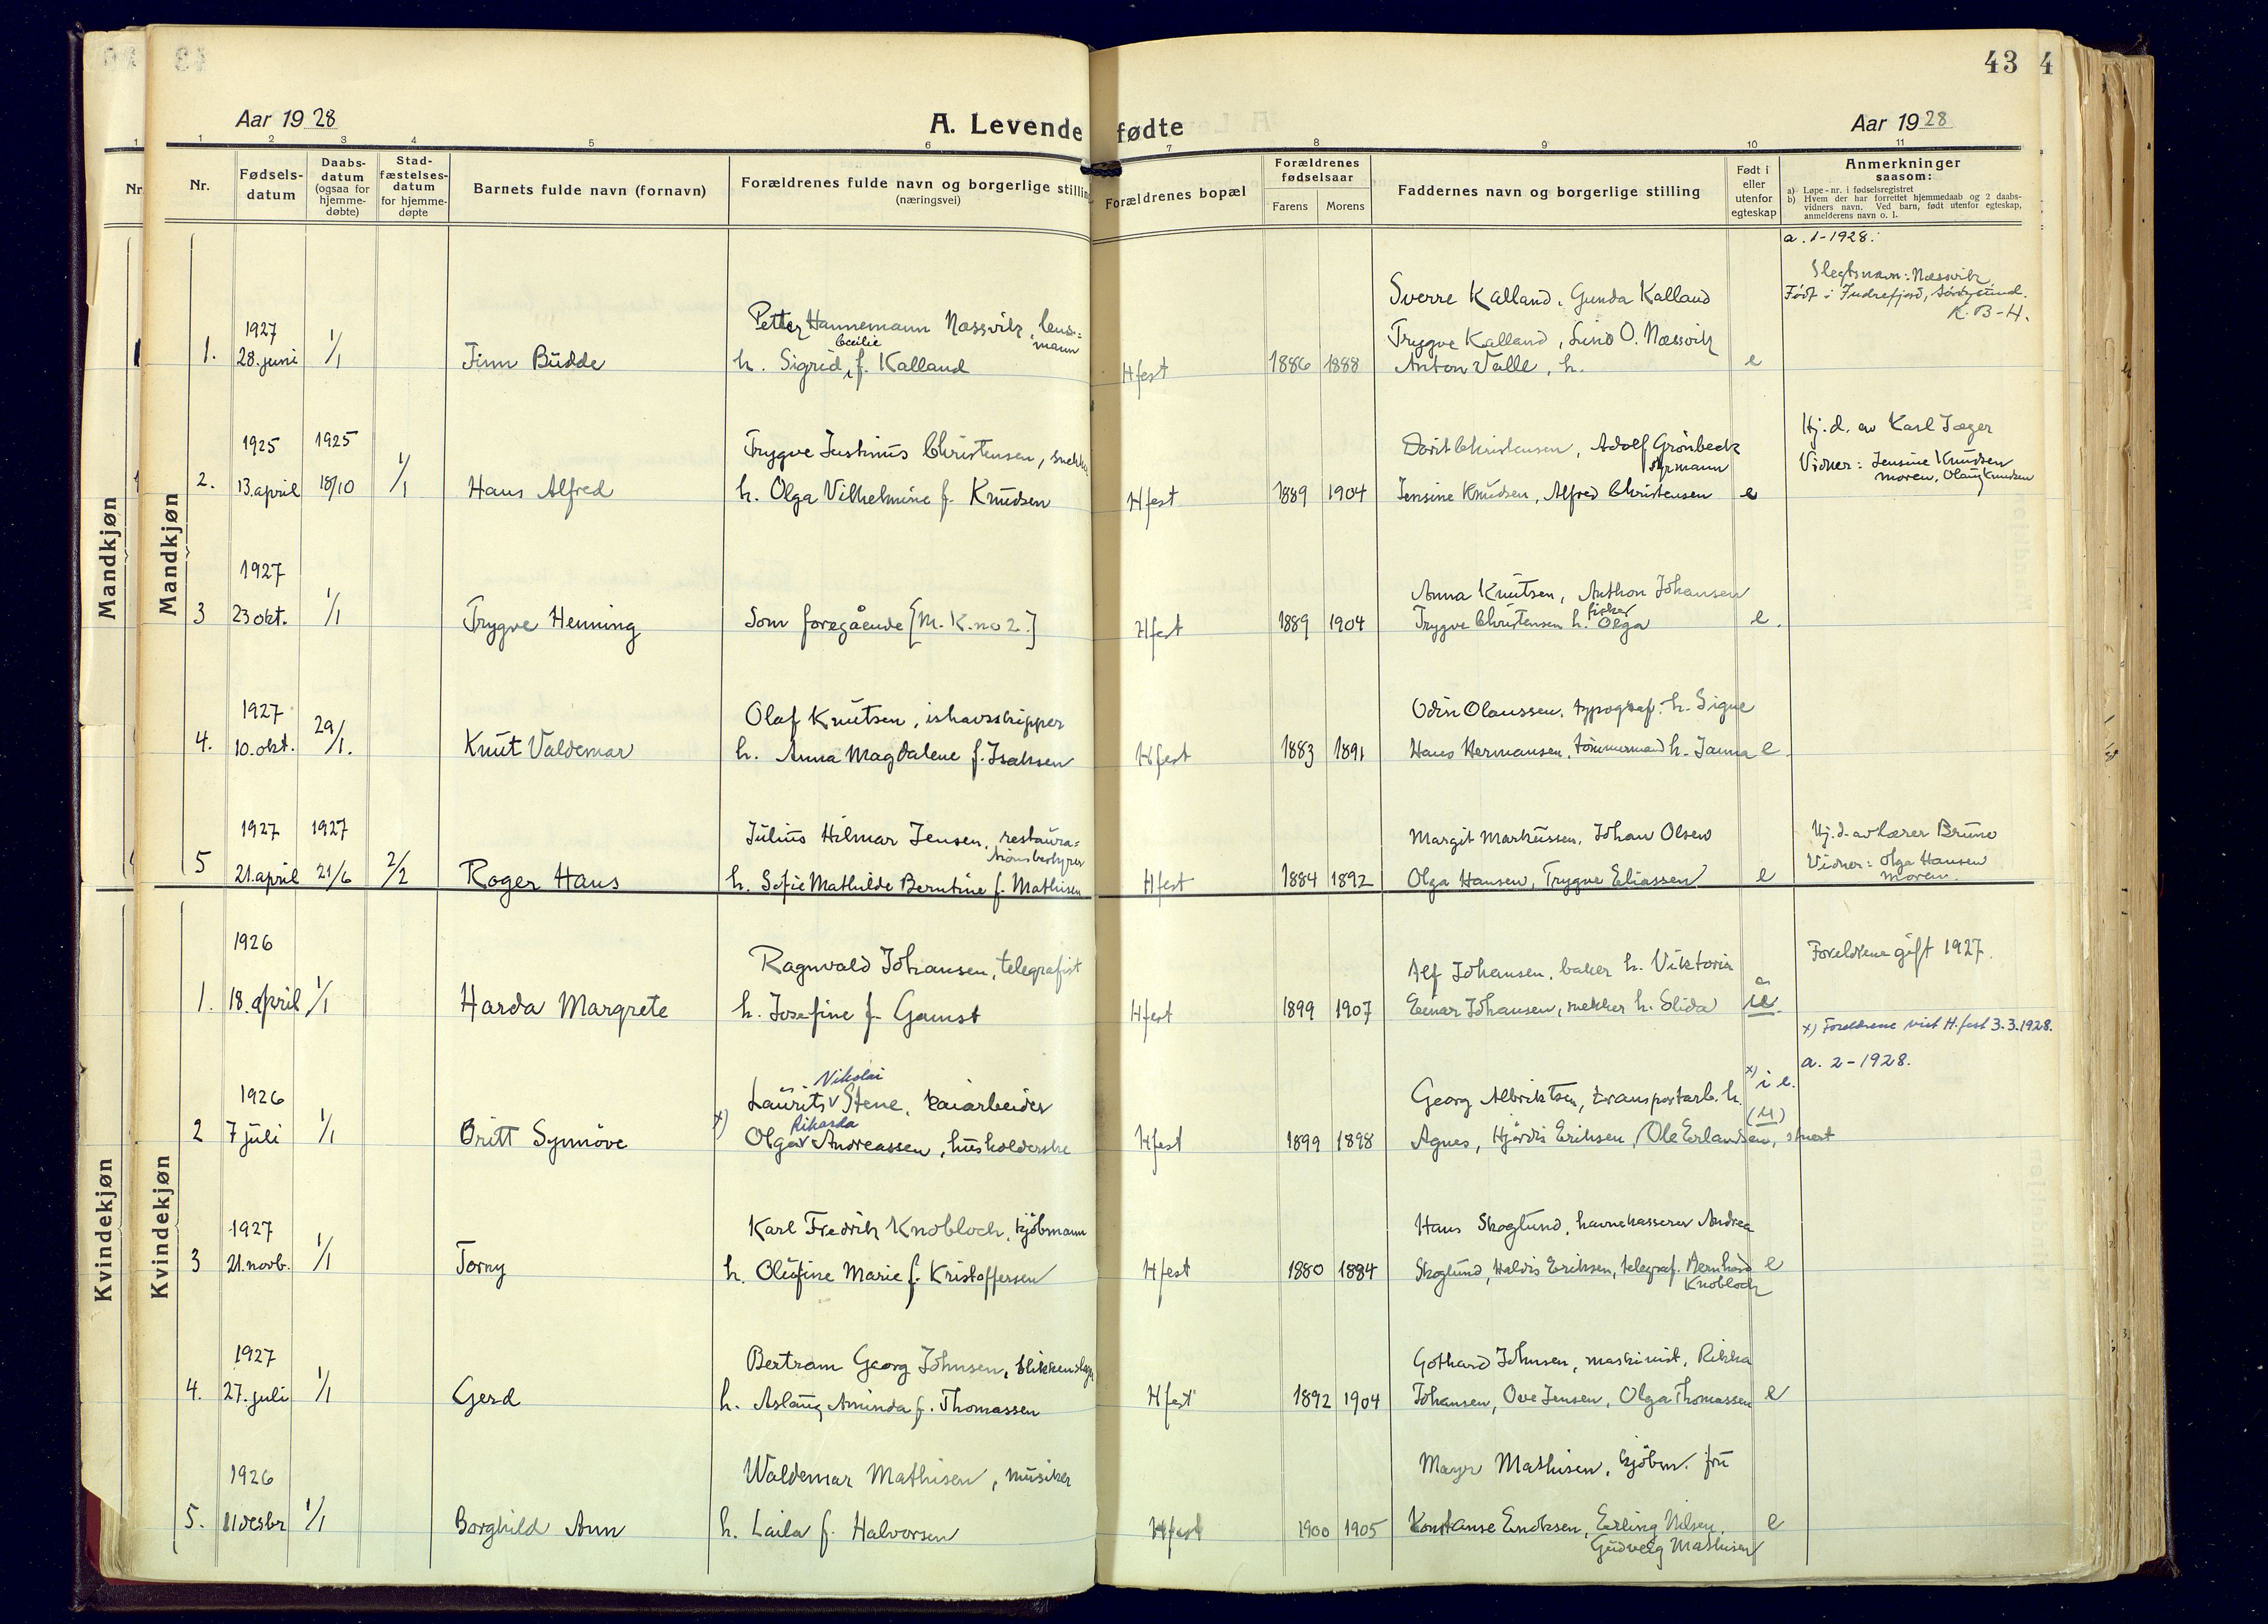 43
43 4
Aar 1928
A. Levende fødte
Aar 1928
1 2 3 4 5 6 7 8 9 10 11
Nr.
Nr.
Fødsels-
datum
Daabs-
datum
(ogsaa for
hjemme-
døbte)
Stad-
fæstelses-
datum
for hjemme-
døpte
Barnets fulde navn (fornavn)
Forældrenes fulde navn og borgerlige stilling
(næringsvei)
Forældrenes bopæl
Forældrenes
fødselsaar
Farens Morens
Faddernes navn og borgerlige stilling
Født i
eller
utenfor
egteskap
Anmerkninger
saasom:
a) Løpe-nr. i fødselsregistret
b) Hvem der har forrettet hjemmedaab og 2 daabs-
vidners navn. Ved barn, født utenfor egteskap,
anmelderens navn o. l.
Mandkjøn
Mandkjøn
1. 1927
28. juni 1/1 Finn Budde
Petter Hannemann Næssvik, lens=
mann
Cecilie
h. Sigrid, f. Kalland
Hfest 1886 1888
Sverre Kalland, Gunda Kalland
Trygve Kalland, O. Næssvik
Anton Valle, h. e
a. 1-1928.
Slegtsnavn: Næssvik
Født i Indrefjord, Söröysund.
K. B-H.
2. 1925 1925
13. april 18/10 1/1 Hans Alfred
Trygve Justinus Christensen, snekker
h. Olga Vilhelmine f. Knudsen
Hfest 1889 1904
Dorit Christensen, Adolf Grönbeck
styrmann
Jensine Knudsen, Alfred Christensen e
Hj.d. av Karl Jæger
Vidner: Jensine Knudsen
moren, Olaug Knudsen
3 1927
23 okt. 1/1 Trygve Henning
Som foregående [M. K. no 2.]
Hfest 1889 1904
Anna Knutsen, Anthon Johansen
fisker
Trygve Christensen h. Olga e.
4. 1927
10. okt. 29/1. Knut Valdemar
Olaf Knutsen, ishavsskipper
h. Anna Magdalene f. Isaksen
Hfest 1883 1891
Odin Olaussen, typograf. h. Signe
Hans Hermansen, tömmermand h. Janna e
5 1927 1927
21. april 21/6 2/2 Roger Hans
Julius Hilmar Jensen, restaura=
tionsbestyrer
h. Sofie Mathilde Berntine f. Mathisen
Hfest 1884 1892
Margit Markussen, Johan Olsen
Olga Hansen, Trygve Eliassen e
Hj.d. av lærer Bruno
Vidner: Olga Hansen
moren.
Kvindekjøn
Kvindekjøn
1. 1926
18. april 1/1 Harda Margrete
Ragnvald Johansen, telegrafist
h. Josefine f. Gamst
Hfest 1899 1907
Alf Johansen, baker h. Viktoria
Einar Johansen, snekker h. Elida
Foreldrene gift 1927.
x) Foreldrene viet H.fest 3.3.1928.
2 1926
7 juli 1/1 Britt Synnöve
Nikolai
Laurits v Stene, kaiarbeider
Rikarda
x) Olga v Andreassen, husholderske
Hfest 1899 1898
Georg Albriktsen, transportarb. h.
Agnes, Hjördis Eriksen, Ole Erlandsen, stuert
x) i e.
(U)
a. 2-1928.
3 1927
21. novb. 1/1 Torny
Karl Fredrik Knobloch, kjöbmann
h. Olufine Marie f. Kristoffersen
Hfest 1880 1884
Hans Skoglund, havnekasserer Andrea
Skoglund, Haldis Eriksen, telegraf. Bernhard e
Knobloch
4. 1927
27. juli 1/1 Gerd
Bertram Georg Johnsen, blikkenslager
h. Aslaug Aminda f. Thomassen
Hfest 1892 1904
Gothard Johnsen, maskinist, Rikka
Johansen, Ove Jensen, Olga Thomassen e
5. 1926
11 desbr 1/1 Borghild Ann
Waldemar Mathisen, musiker
h. Laila f. Halvorsen
Hfest 1900 1905
Mayr Mathisen, kjöbm. fru
Konstanse Eriksen, Erling Nilsen, e
Gudveig Mathisen